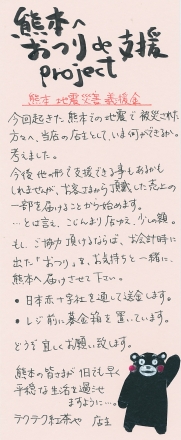 熊本へ
おつりde支援
project
熊本地震災害義援金
今回起きた熊本での地震で被災された
方々へ、当店の店主として、いま何ができるか。
考えました。
今後 他の形で支援できる事もあるかも
しれませんが、お客さまから頂戴した売上の
一部を届けることから始めます。
…とは言え、こじんまり店ゆえ、少し額。
もし、ご協力頂けるならば、お会計時に
出た「おつり」を、お気持ちと一緒に、
熊本へ届けさせて下さい。
•日本赤十字社を通して送金します。
•レジ前に募金箱を置いています。
どうぞ宜しくお願い致します。
熊本の皆さまが1日でも早く
平穏な生活を過せ
ますように…。
テクテク紅茶や 店主